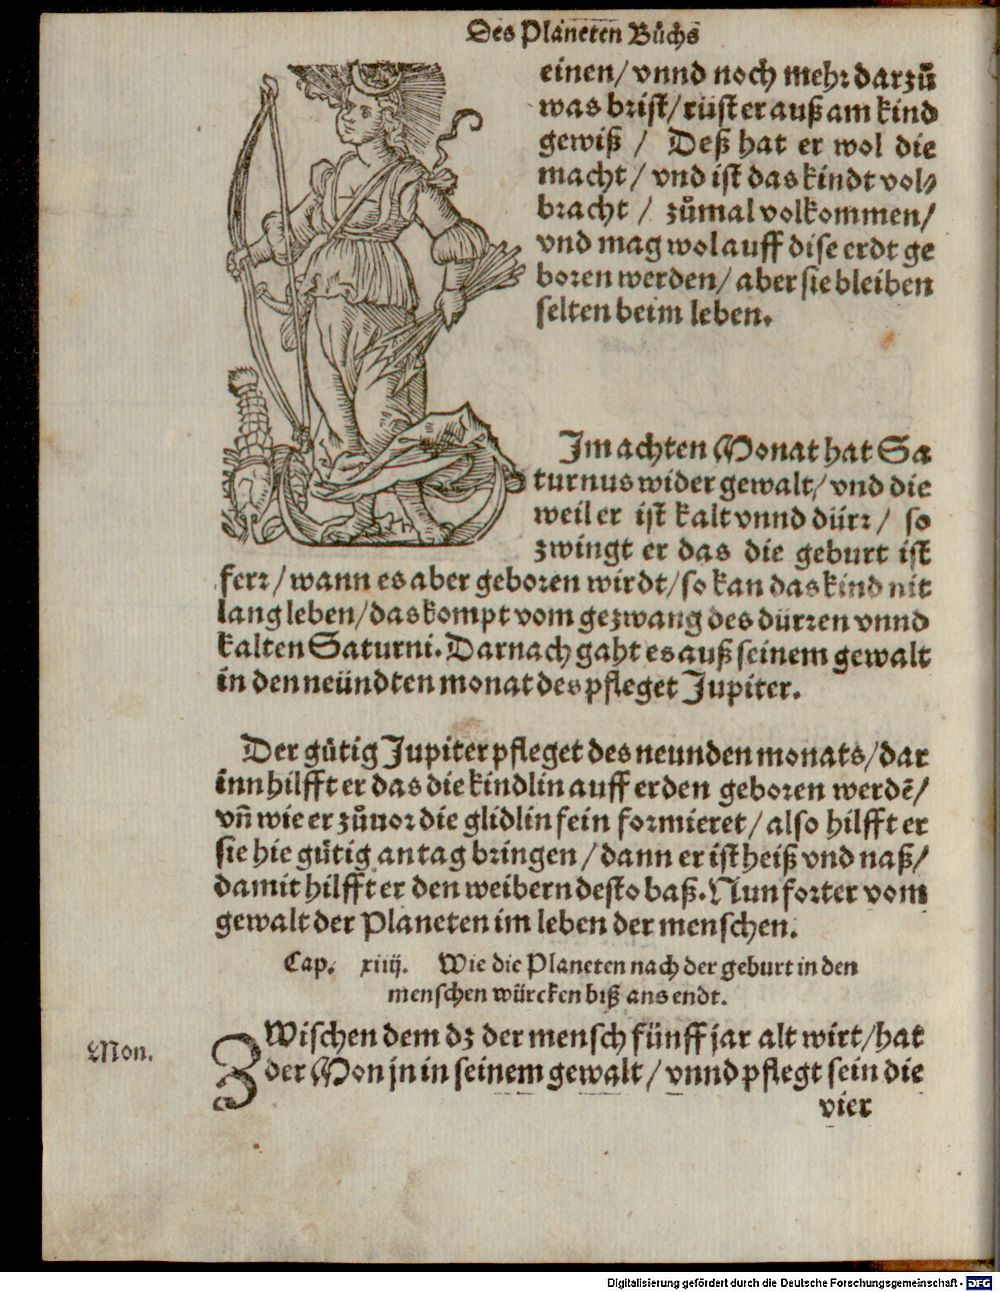 Des Planeten Bůchs
einen/ vnnd noch mehr darzů
was brist/ rüst er auß am kind
gewiß / Deß hat er wol die
macht/ vnd ist das kindt vol⸗
bracht / zůmal volkommen/
vnd mag wol auff dise erdt ge
boren werden/ aber sie bleiben
selten beim leben.
Im achten Monat hat Sa
turnus wider gewalt/ vnd die
weil er ist kalt vnnd dürr/ so
zwingt er das die geburt ist
ferr/ wann es aber geboren wirdt/ so kan das kind nit
lang leben/ das kompt vom gezwang des dürren vnnd
kalten Saturni. Darnach gaht es auß seinem gewalt
in den neündten monat des pfleget Jupiter.
Der gütig Jupiter pfleget des neunden monats/ dar
inn hilfft er das die kindlin auff erden geboren werdē/
vñ wie er zůuor die glidlin fein formieret/ also hilfft er
sie hie gütig an tag bringen/ dann er ist heiß vnd naß/
damit hilfft er den weibern desto baß. Nun forter vom
gewalt der Planeten im leben der menschen.
Cap. xiiij. Wie die Planeten nach der geburt in den
menschen würcken biß ans endt.
ZWischen dem dz der mensch fünff jar alt wirt/ hat
Mon.
der Mon jn in seinem gewalt/ vnnd pflegt sein die
vier
Digitalisierung gefördert durch die Deutsche Forschungsgemeinschaft - DFG